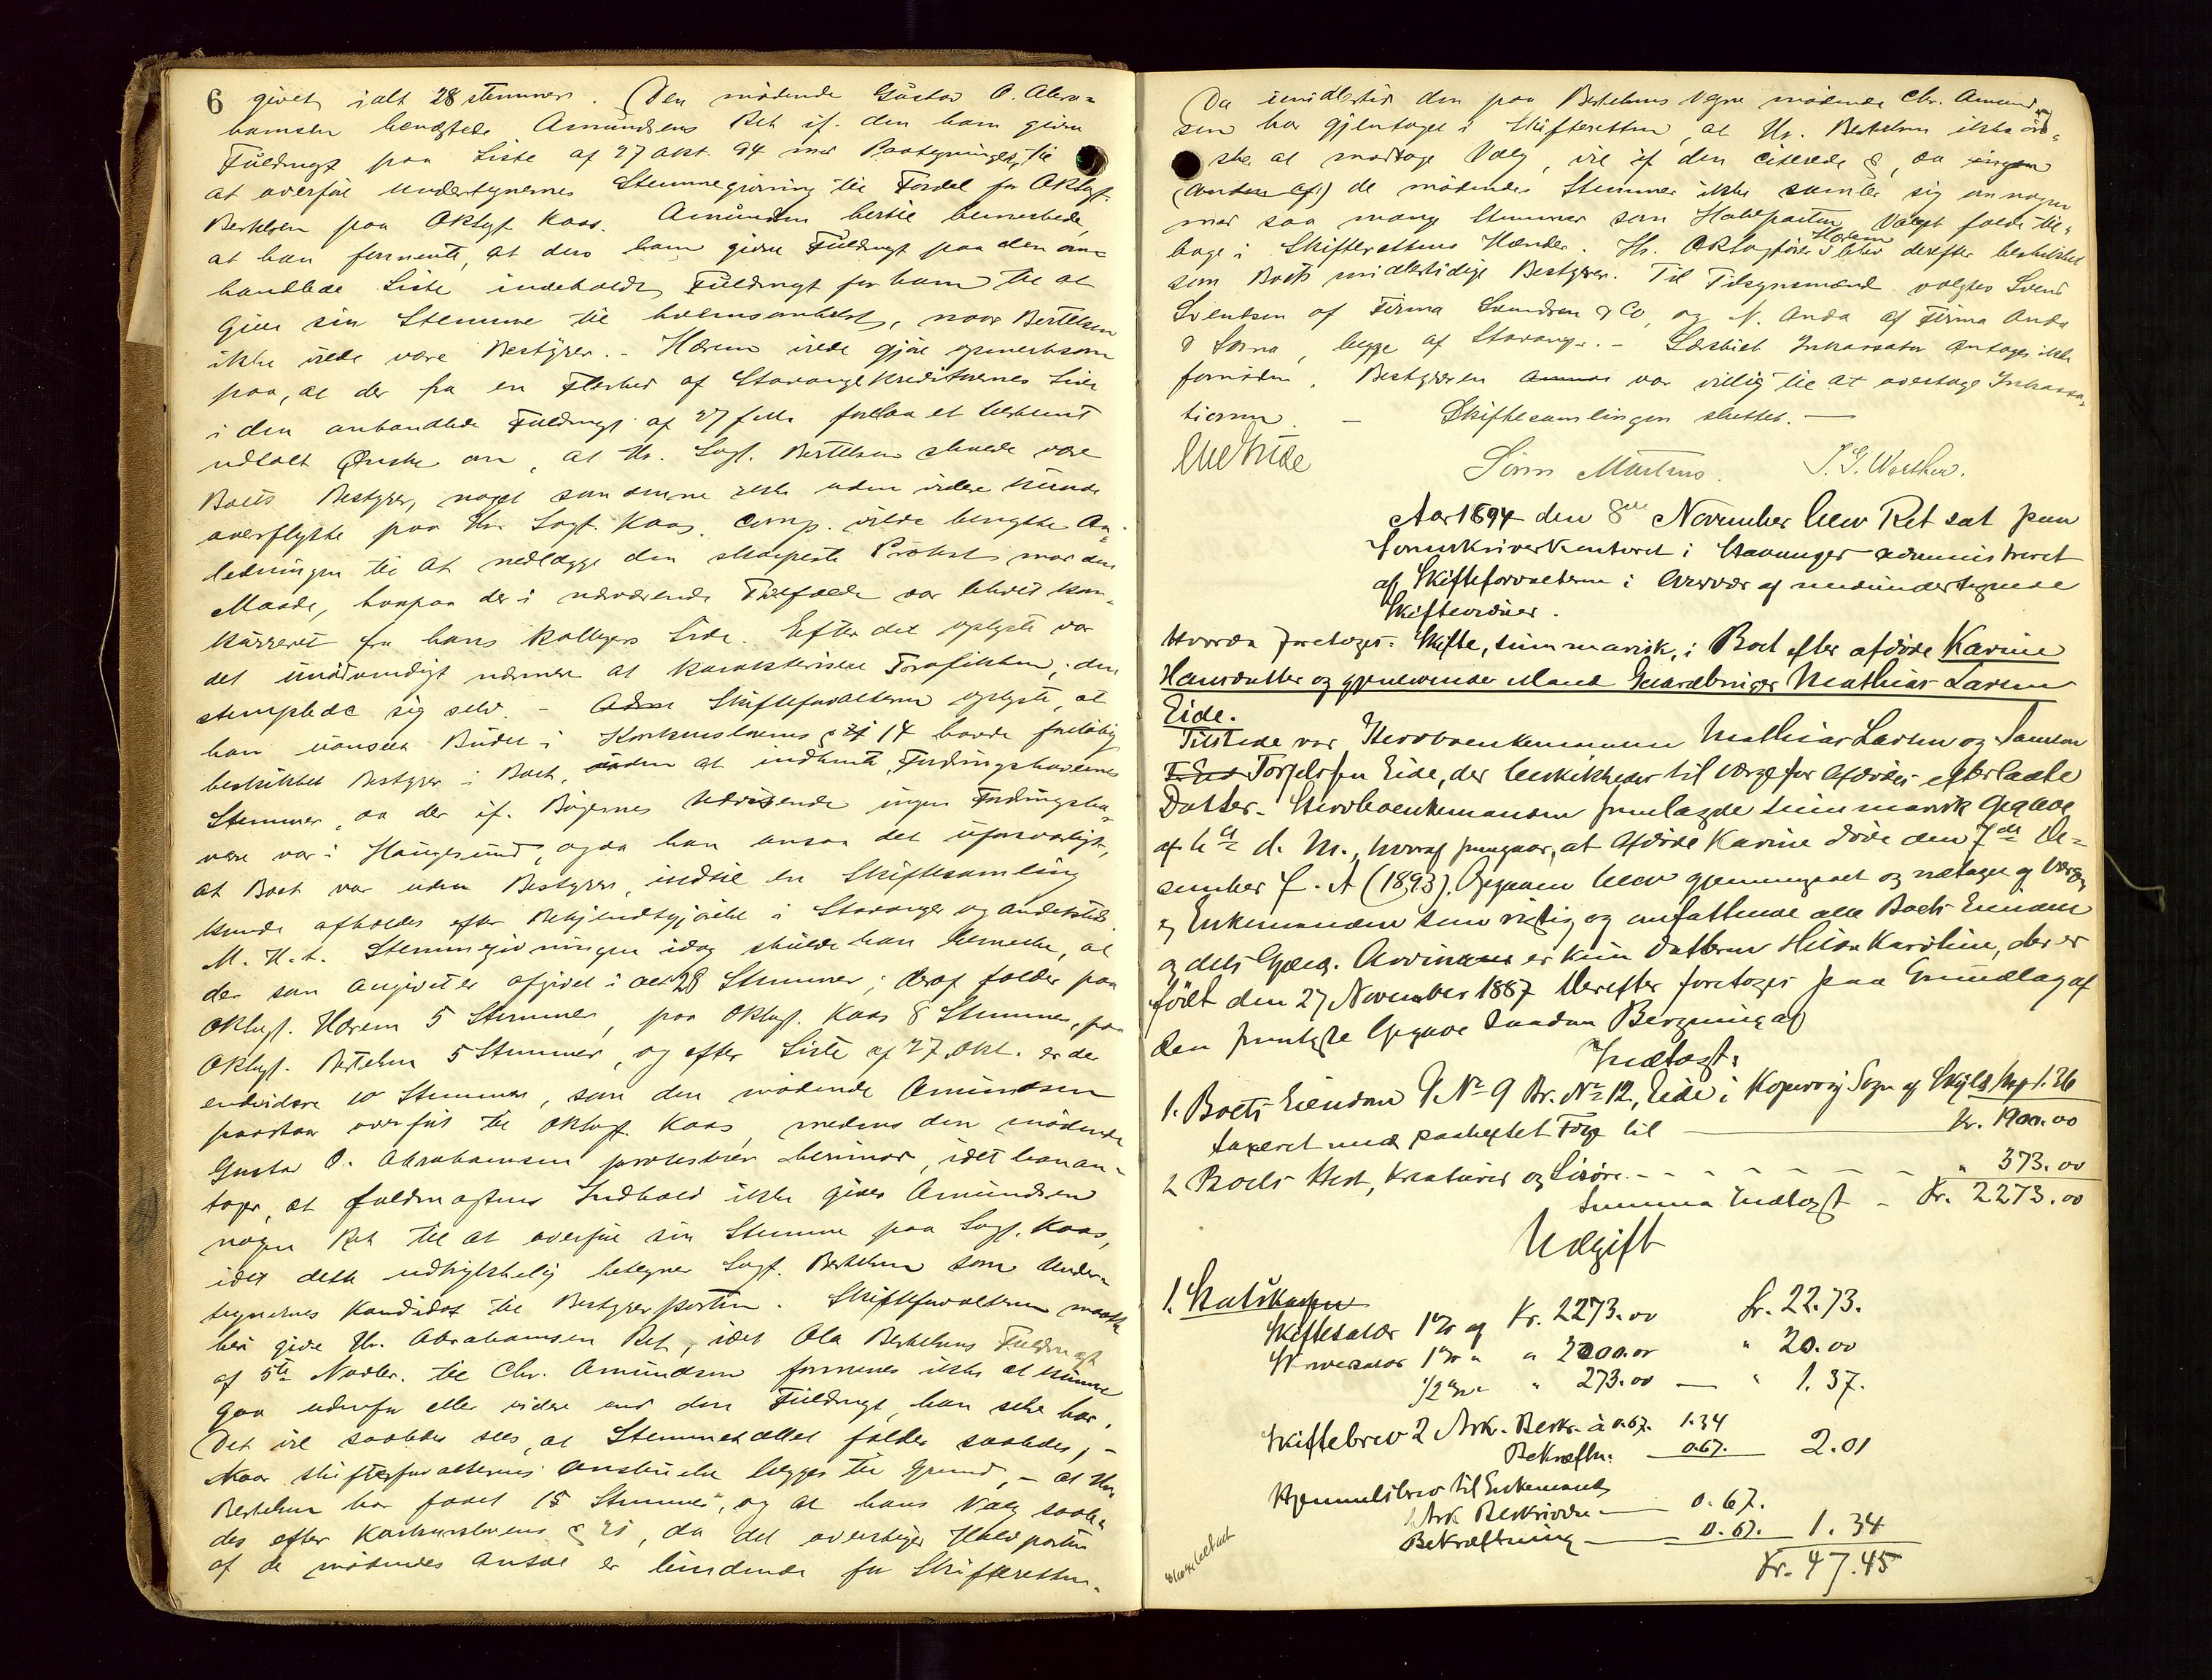 6 givet ialt 28 stemmer. Den mødende Gustav O. Abra=
hamsen benegtede Amundsens Ret if. den ham givne
Fuldmagt paa Liste af 27 Okt. 94 med Paategninger, til
at overføre Undertegnernes Stemmegivning til Fordel for ORSagf.
Bertelsen paa ORSagf. Kaas. Amundsen hertil bemerkede,
at han formente, at den ham givne Fuldmagt paa den om=
handlede Liste indeholdt Fuldmagt for ham til at
give sin Stemme til hvemsomhelst, naar Bertelsen
ikke vilde være Bestyrer. - Hærem vilde gjøre opmerksom
paa, at der fra en Flerhed af Stavangerkreditorernes Side
i den omhandlede Fuldmagt af 27 forelaa et bestemt
udtalt Ønske om, at Hr. Sagf. Bertelsen skulde være
Boets Bestyrer, noget som denne ikke uden videre kunde
overflytte paa Hr. Sagf. Kaas. Comp. vilde benytte An-
ledningen til at nedlægge den skarpeste Protest mod den
Maade, hvorpaa der i nærværende Tilfælde var blevet kon-
kurreret fra hans Kollegers Side. Efter det oplyste var
det unødvendigt nærmere at karakterisere Trafikken; den
stemplede sig selv. - Skifteforvalteren oplyste, at
han uanseet Budet i Konkurslovens § 14 havde foreløbig
beskikket Bestyrer i Boet, uden at indhente Fordringshavernes
Stemmer, da der if. Bøgernes Udvisende ingen Fordringsha-
vere var i Haugesund, og da han ansaa det uforsvarligt,
at Boet var uden Bestyrer, indtil en Skiftesamling
kunde afholdes efter Bekjendtgjørelse i Stavanger og andetsteds.
M. H. t. Stemmegivningen idag skulde han bemerke, at
der som angivet er afgivet i alt 28 Stemmer; deraf falder paa
ORSagf. Hærem 5 Stemmer, paa ORSagf. Kaas 8 Stemmer, paa
ORSagf. Bertelsen 5 Stemmer, og efter Liste af 27 Okt. er der
endvidere 10 Stemmer, som den mødende Amundsen
paastaar overført til ORSagf. Kaas, medens den mødende
Gustav O. Abrahamsen protesterer herimod, idet han an-
tager, at Fuldmagtens Indhold ikke giver Amundsen
nogen Ret til at overføre sin Stemme paa Sagf. Kaas,
idet dette udtrykkelig betegner Sagf. Bertelsen som Under-
tegnernes Kandidat til Bestyrerposten. Skifteforvalteren maatte
heri give Hr. Abrahamsen Ret, idet Ola Bertelsens Fuldmagt
af 5te Novbr. til Chr. Amundsen formenes ikke at kunne
gaa udenfor eller videre end den Fuldmagt, han selv har.
Det vil saaledes sees, at Stemmetallet falder saaledes, -
naar Skifteforvalterens Anskuelse lægges til Grund, - at Hr.
Bertelsen har faaet 15 Stemmer, og at hans Valg saale-
des efter Konkurslovens §, da det overstiger Halvparten
af de mødendes Antal er bindende for Skifteretten.
Da imidlertid den paa Bertelsens Vegne mødende Chr. Amund
sen har gjentaget i Skifteretten, at Hr. Bertelsen ikke øn-
sker at modtage Valg, vil if. den citerede §, da ingen
(anden af) de mødendes Stemmer ikke samler sig om nogen
med saa mange Stemmer som Halvparten, Valget falde til-
bage i Skifterettens Hænder. Hr. ORSagfører Hærem blev derefter beskikket
som Boets midlertidige Bestyrer. Til Tilsynsmænd valgtes Svend
Svendsen af Firma Svendsen & Co, og N. Anda af Firma Anda
& Sørna, begge af Stavanger. - Særskilt Inkassator antages ikke
fornøden. Bestyreren var villig til at overtage Inkassa-
tionen. - Skiftesamlingen sluttet. -
Søren Mortens. I. G. Walther.
Aar 1894 den 8de November blev Ret sat paa
Sorenskriverkontoret i Stavanger administreret
af Skifteforvalteren i Overvær af medundertegnede
Skiftevidner.
Hvorda foretoges: Skifte, summarisk, i Boet efter afdøde Karine
Hansdatter og gjenlevende Mand Gaardbruger Mathias Larsen
Eide.
Tilstede var Stervboenkemanden Mathias Larsen og Samson
Torjelsen Eide, der beskikkedes til Verge for Afdødes efterladte
Datter. Stervboenkemanden fremlagde summarisk Opgave
af 6te d. M., hvoraf fremgaar, at Afdøde Karine døde den 7de De-
cember f. A (1893). Opgaven blev gjennemgaaet og vedtaget af Vergen
og Enkemanden som rigtig og omfattende alle Boets Eiendele
og dets Gjæld. Arving er kun Datteren Hilda Karoline, der er
født den 27 November 1887. Derefter foretoges paa Grundlag af
den fremlagte Opgave saadan Beregning af
Indtægt:
1. Boets Eiendom G. No 9 Br. No 12, Eide i Kopervig Sogn af Skyld Mrk 1.36
taxeret med paaheftet Forp til Kr. 1900.00
2 Boets Hest, Kreaturer og Løsøre. - - - - - - - " 373.00
Summa Indtægt - Kr. 2273.00
Udgift
1. Statskassen
Skiftesalær 1% af Kr. 2273.00 Kr. 22.73.
1% " " 2000.00 " 20.00
1/2% " " 273.00 — " 1.37.
Skiftebrev 2 Ark. Beskr. à 0.67. 1.34
Bekræftn. 0.67. 2.01
Hjemmelsbrev til Enkemand
1 Ark Beskrivelse — 0.67.
Bekræftning — 0.67. 1.34
Kr. 47.45